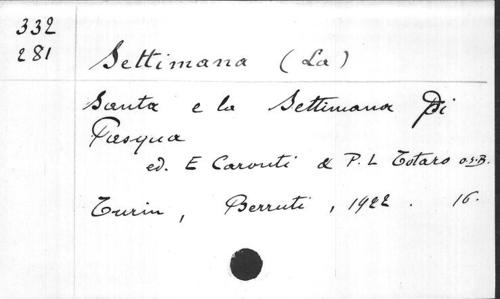 332
281
Settimana (La)
Santa e la Settimana Di
Pasqua
ed. E Caronti & P. L Totaro O.S.B.
Turin, Berruti, 1922. 16.